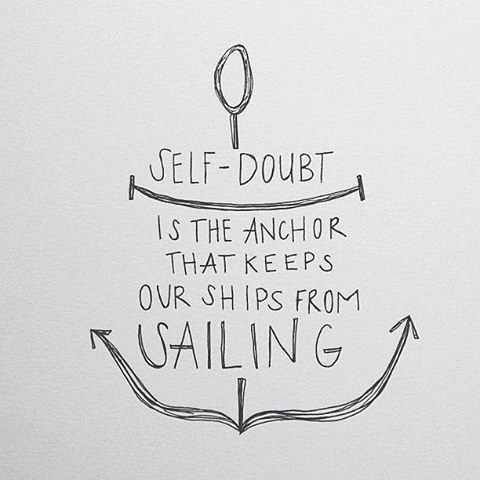 SELF-DOUBT
IS THE ANCHOR
THAT KEEPS
OUR SHIPS FROM
SAILING